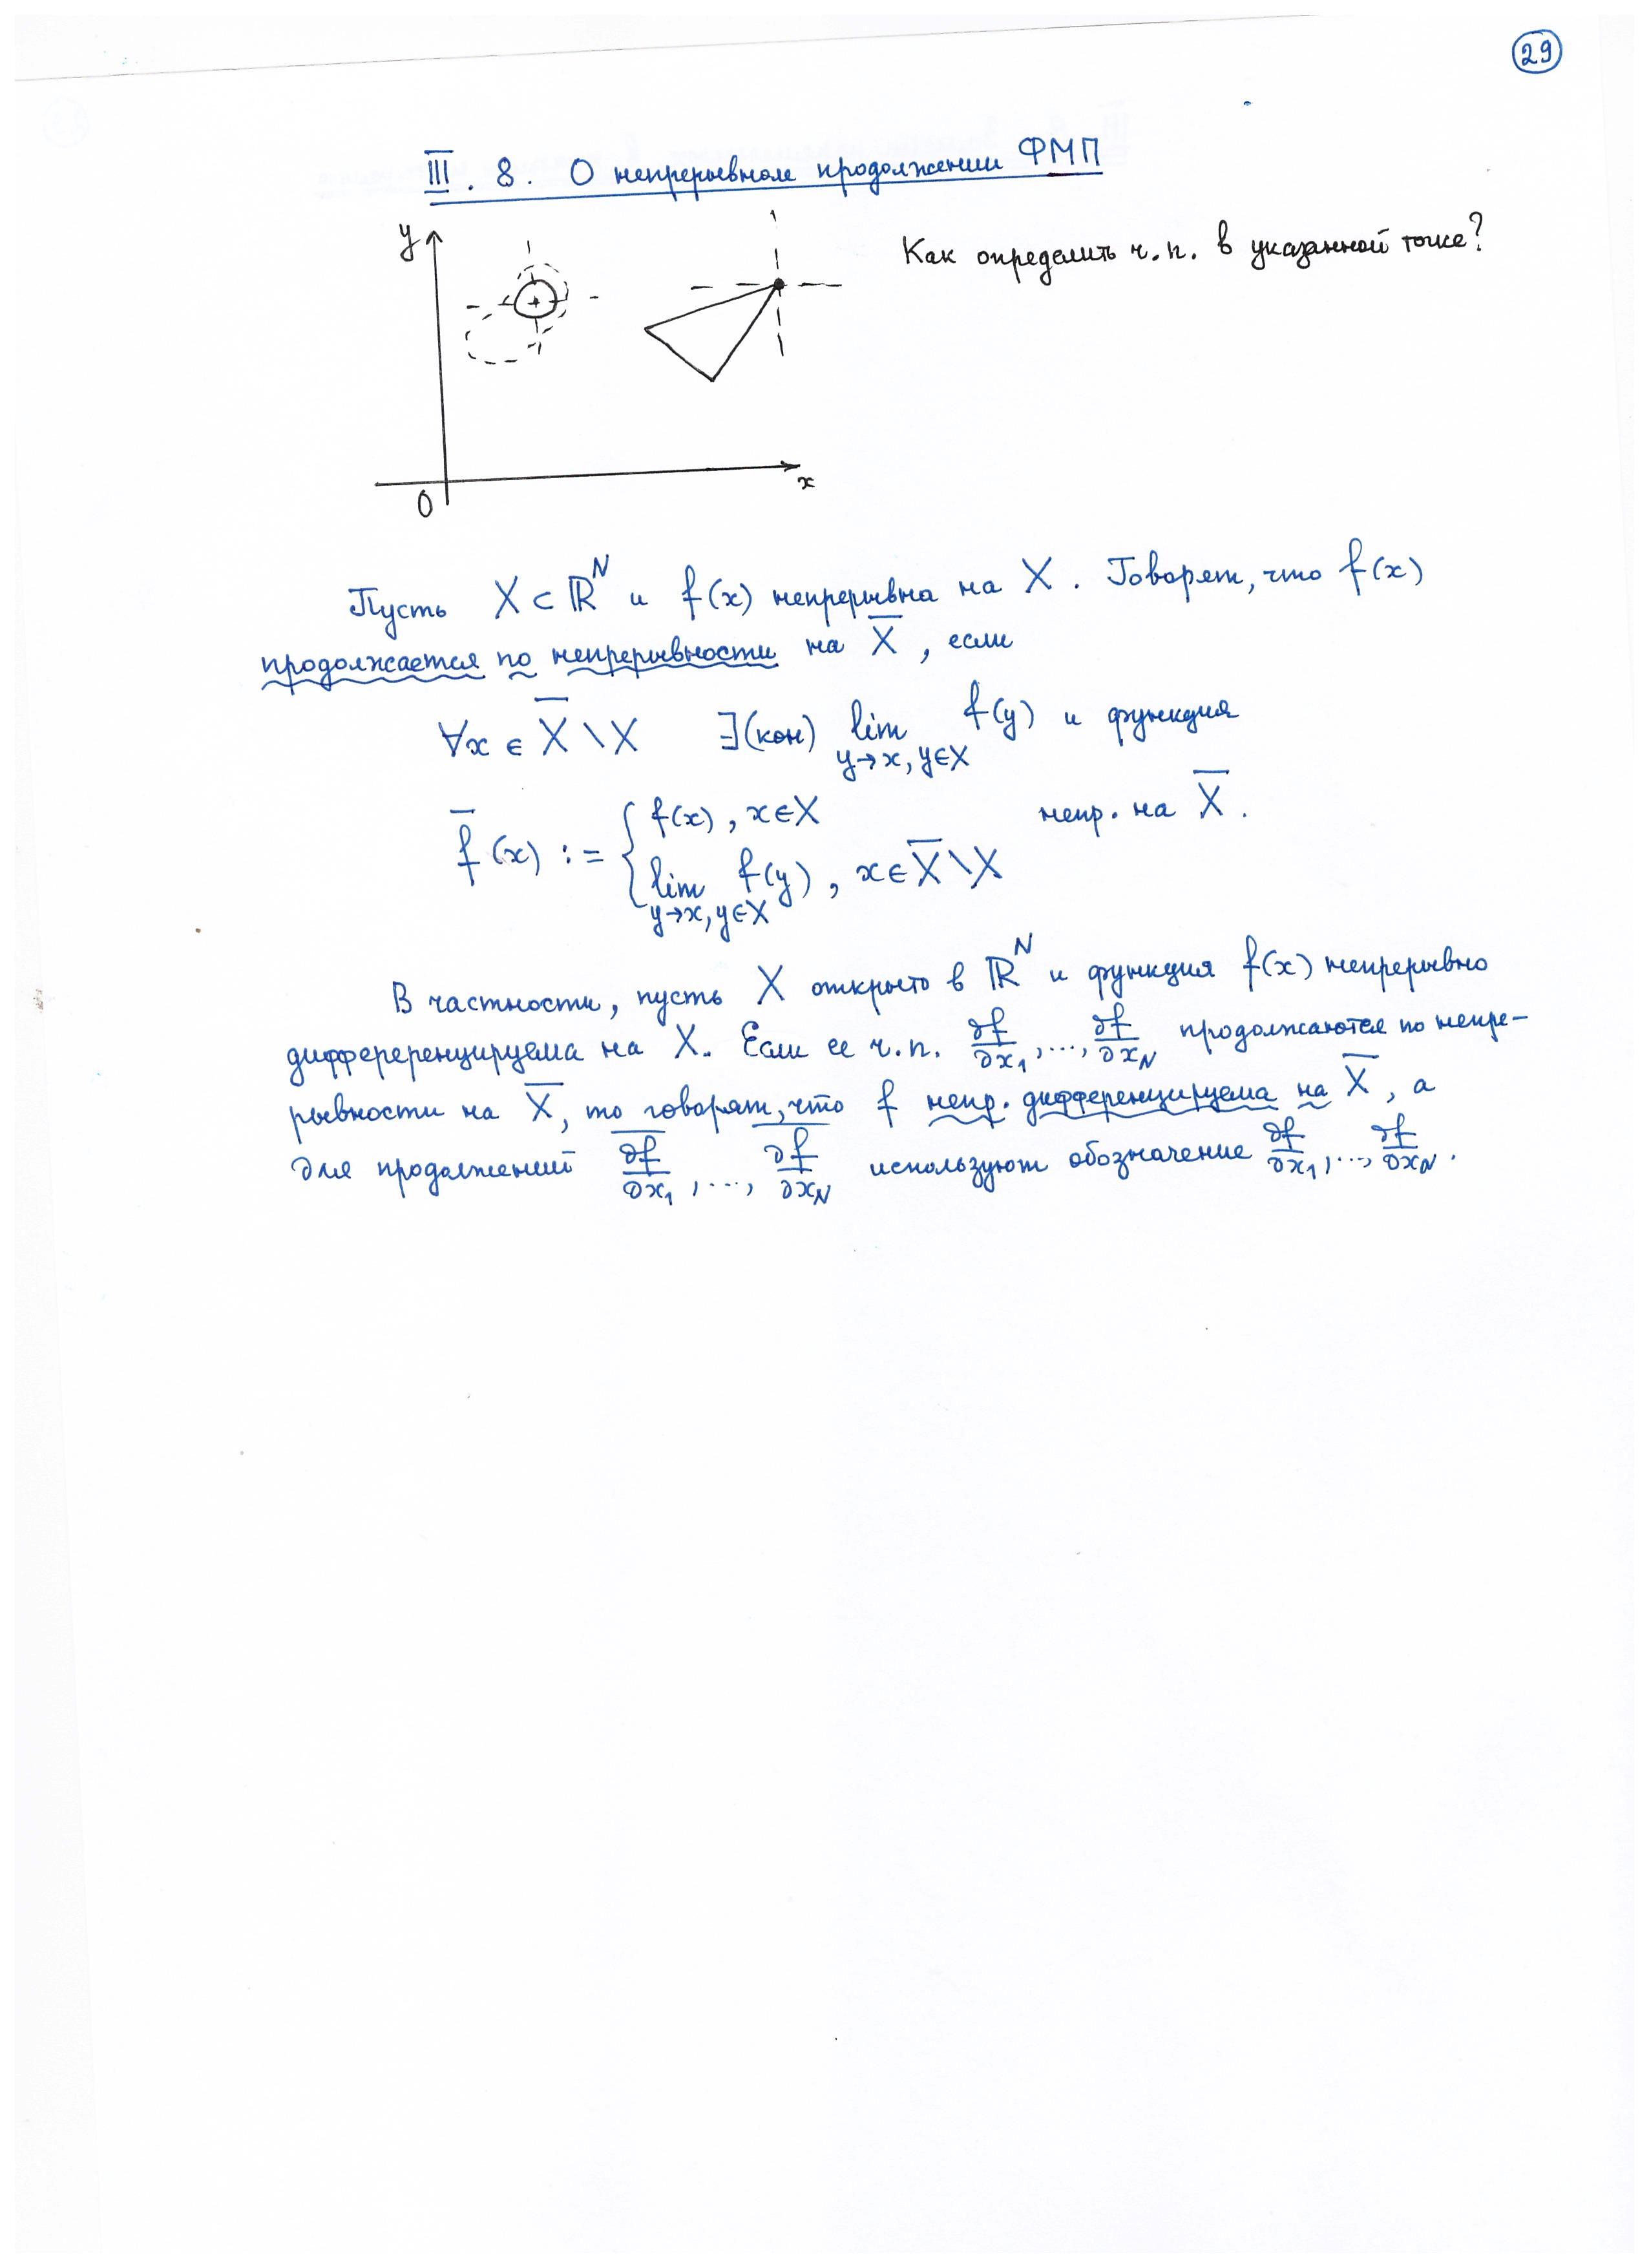 29
III. 8. О непрерывном продолжении ФМП
y
Как определить ч.п. в указанной точке?
x
0
Пусть X ⊂ ℝ^N и f(x) непрерывна на X. Говорят, что f(x)
продолжается по непрерывности на X̅, если
∀x ∈ X̅ \ X ∃(кон) lim_{y→x, y∈X} f(y) и функция
f̅(x) := { f(x), x∈X непр. на X̅.
lim_{y→x, y∈X} f(y), x∈X̅ \ X
В частности, пусть X открыто в ℝ^N и функция f(x) непрерывно
дифференцируема на X. Если ее ч.п. ∂f/∂x₁, ..., ∂f/∂x_N продолжаются по непре-
рывности на X̅, то говорят, что f непр. дифференцируема на X̅, а
для продолжений \overline{∂f/∂x₁}, ..., \overline{∂f/∂x_N} используют обозначение ∂f/∂x₁, ..., ∂f/∂x_N.